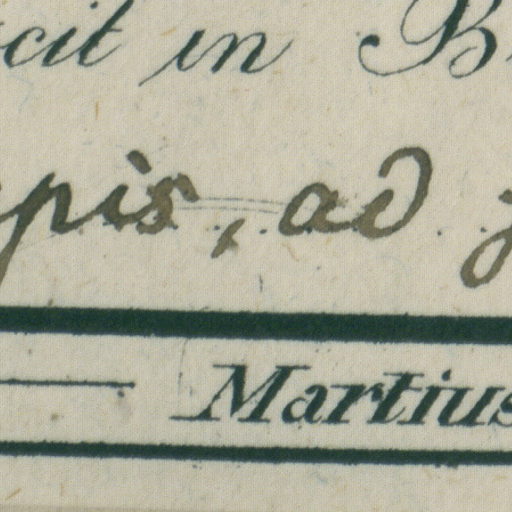 cit in B
pis, ad
Martius